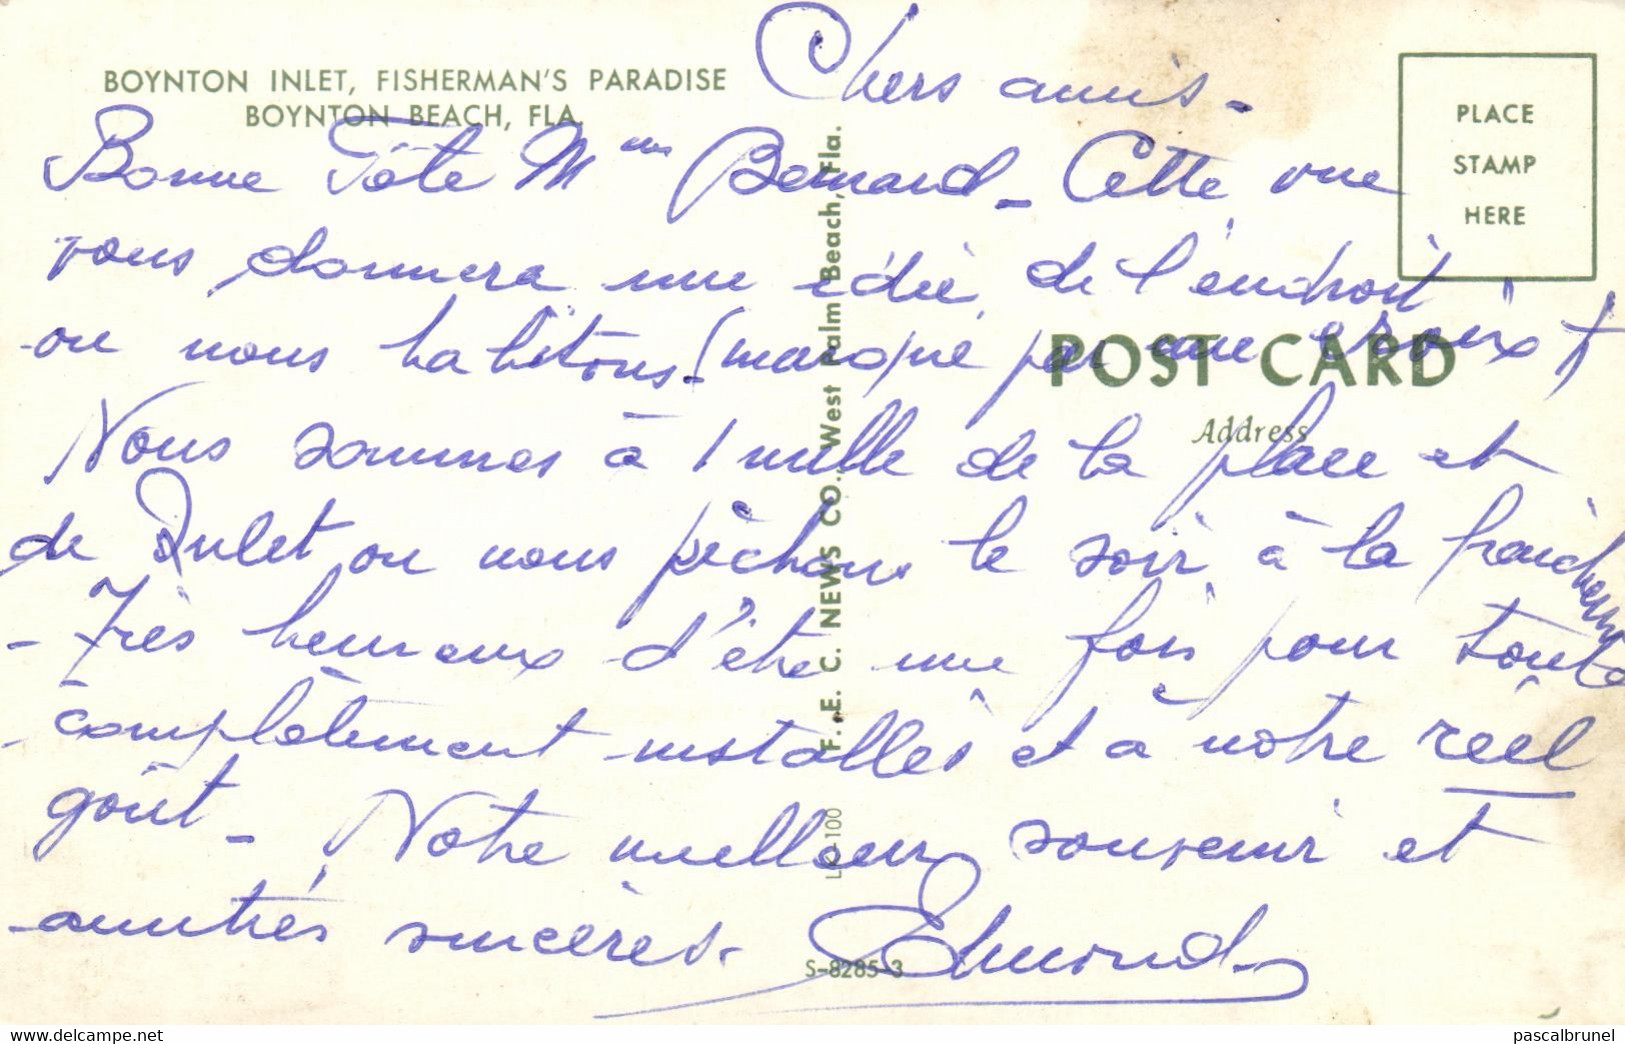 BOYNTON INLET, FISHERMAN'S PARADISE
BOYNTON BEACH, FLA.
PLACE
STAMP
HERE
POST CARD
Address
F. E. C. NEWS CO. West Palm Beach, Fla.
S-8285-3
Chers amis -
Bonne Fête Mme Bernard - Cette vue
vous donnera une idée de l'endroit
ou nous habitons - (marqué par une croix †)
Nous sommes à 1 mille de la place et
de Inlet ou nous pêchons le soir à la fraicheur
- Très heureux d'être une fois pour toute
complètement installés et à notre réel
goût - Notre meilleur souvenir et
amitiés sincères. Edmond
pascalbrunel